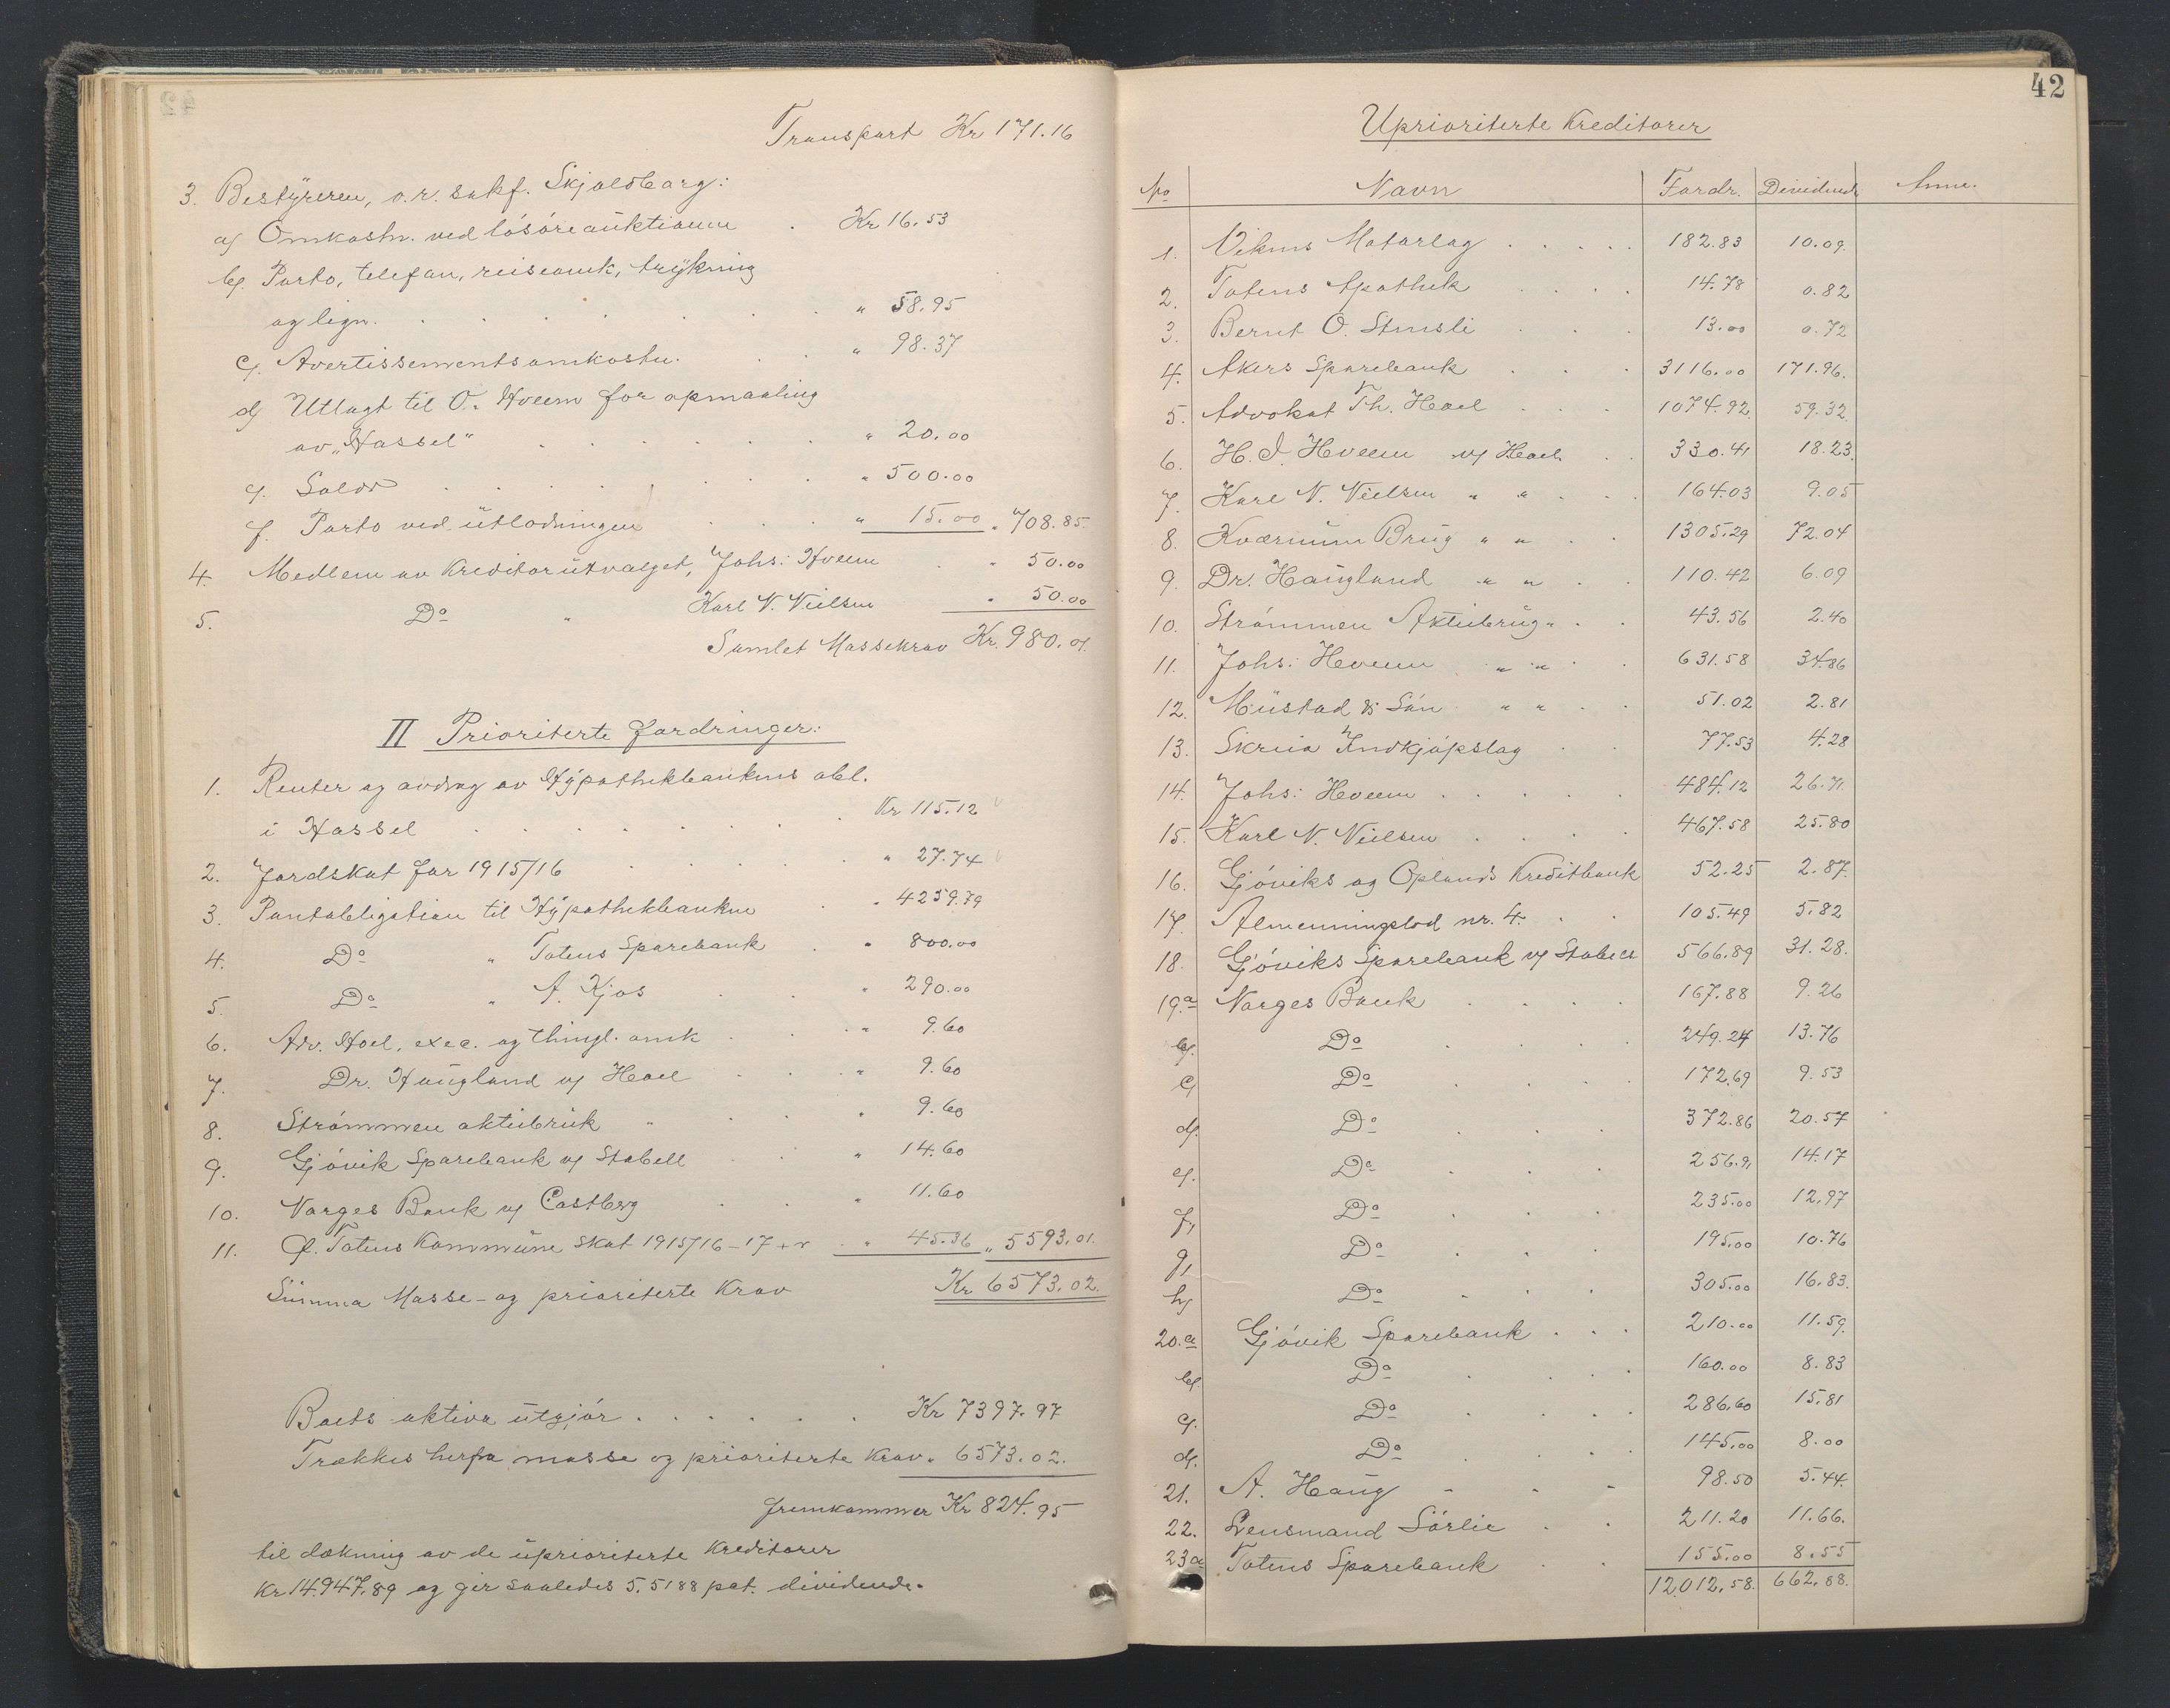 Transport Kr 171.16
3. Bestyreren, o.r. sakf. Skjalsbarg:
a) Omkostn. ved løsøreauktionen . Kr 16.53
b) Porto, telefon, reiseomk, trykning
og lign. . . . . . . " 58.95
c) Avertissementsomkostn. . . " 98.37
d) Utlagt til O. Hveem for opmaaling
av "Hassel" . . . . . " 20.00
e) Salær . . . . . . " 500.00
f. Porto ved utlodningen . . . " 15.00 " 708.85
4. Medlem av Kreditorutvalget, Johs: Hveem . " 50.00
5. Do " Karl N. Nielsen " 50.00
Samlet Massekrav Kr. 980.01
II Prioriterte fordringer:
1. Renter og avdrag av Hypothekbankens obl.
i Hassel . . . . . . Kr 115.12
2. Jordskat for 1915/16 . . . . " 27.74
3. Pantobligation til Hypothekbanken . " 4259.79
4. Do " Totens Sparebank . " 800.00
5. Do " A. Kjos . . " 290.00
6. Adv. Hoel, exec. og thingl. omk . . " 9.60
7. Dr. Haugland v/ Hoel . . . " 9.60
8. Strømmen aktiebruk " . . " 9.60
9. Gjøvik Sparebank v/ Stabell . . " 14.60
10. Norges Bank v/ Castberg . . " 11.60
11. Ø. Totens Kommune skat 1915/16-17 + r . " 45.36 " 5593.01.
Summa Masse- og prioriterte Krav Kr 6573.02.
Boets aktiva utgjør . . . . . . Kr 7397.97
Trækkes herfra masse og prioriterte Krav " 6573.02.
fremkommer Kr 824.95
til dækning av de uprioriterte Kreditorer
Kr 14947.89 og gir saaledes 5.5188 pct. dividende.
42
Uprioriterte Kreditorer
No Navn Fordr. Dividende Anm.
1. Vikens Motorlag . . . . . 182.83 10.09.
2. Totens Apothek . . . . 14.78 0.82
3. Bernt O. Stensli . . . 13.00 0.72
4. Akers Sparebank . . . 3116.00 171.96.
5. Advokat Th. Hoel . . . 1074.92. 59.32
6. H. J. Hveem v/ Hoel . . 330.41 18.23.
7. Karl N. Nielsen " " . . . 164.03 9.05
8. Kværnum Brug " " . . 1305.29 72.04
9. Dr. Haugland " " . . 110.42 6.09
10. Strømmen Aktiebrug " . . 43.56 2.40
11. Johs: Hveem " " . . 631.58 34.86
12. Mustad & Søn " " . . 51.02 2.81
13. Skreia Indkjøpslag . . 77.53 4.28
14. Johs: Hveem . . . . . 484.12 26.71
15. Karl N. Nielsen . . . . 467.58 25.80
16. Gjøviks og Oplands Kreditbank 52.25 2.87.
17. Almenningslod nr. 4. . . 105.49 5.82
18. Gjøviks Sparebank v/ Stabell 566.89 31.28.
19.a Norges Bank . . . . 167.88 9.26
b). Do . . . . 249.24 13.76
c) Do . . . . 172.69 9.53
d). Do . . . 372.86 20.57
e). Do . . . 256.91 14.17
f) Do . . . 235.00 12.97
g) Do . . . 195.00 10.76
h) Do . . . 305.00 16.83.
20.a Gjøvik Sparebank . . . 210.00 11.59.
b). Do . . . . 160.00 8.83
c). Do . . . . 286.60 15.81
d). Do . . . . 145.00 8.00
21. A. Haug . . . 98.50 5.44.
22. Lensmand Sørlie . . 211.20 11.66.
23a Totens Sparebank . . 155.00 8.55
12012.58. 662.88.